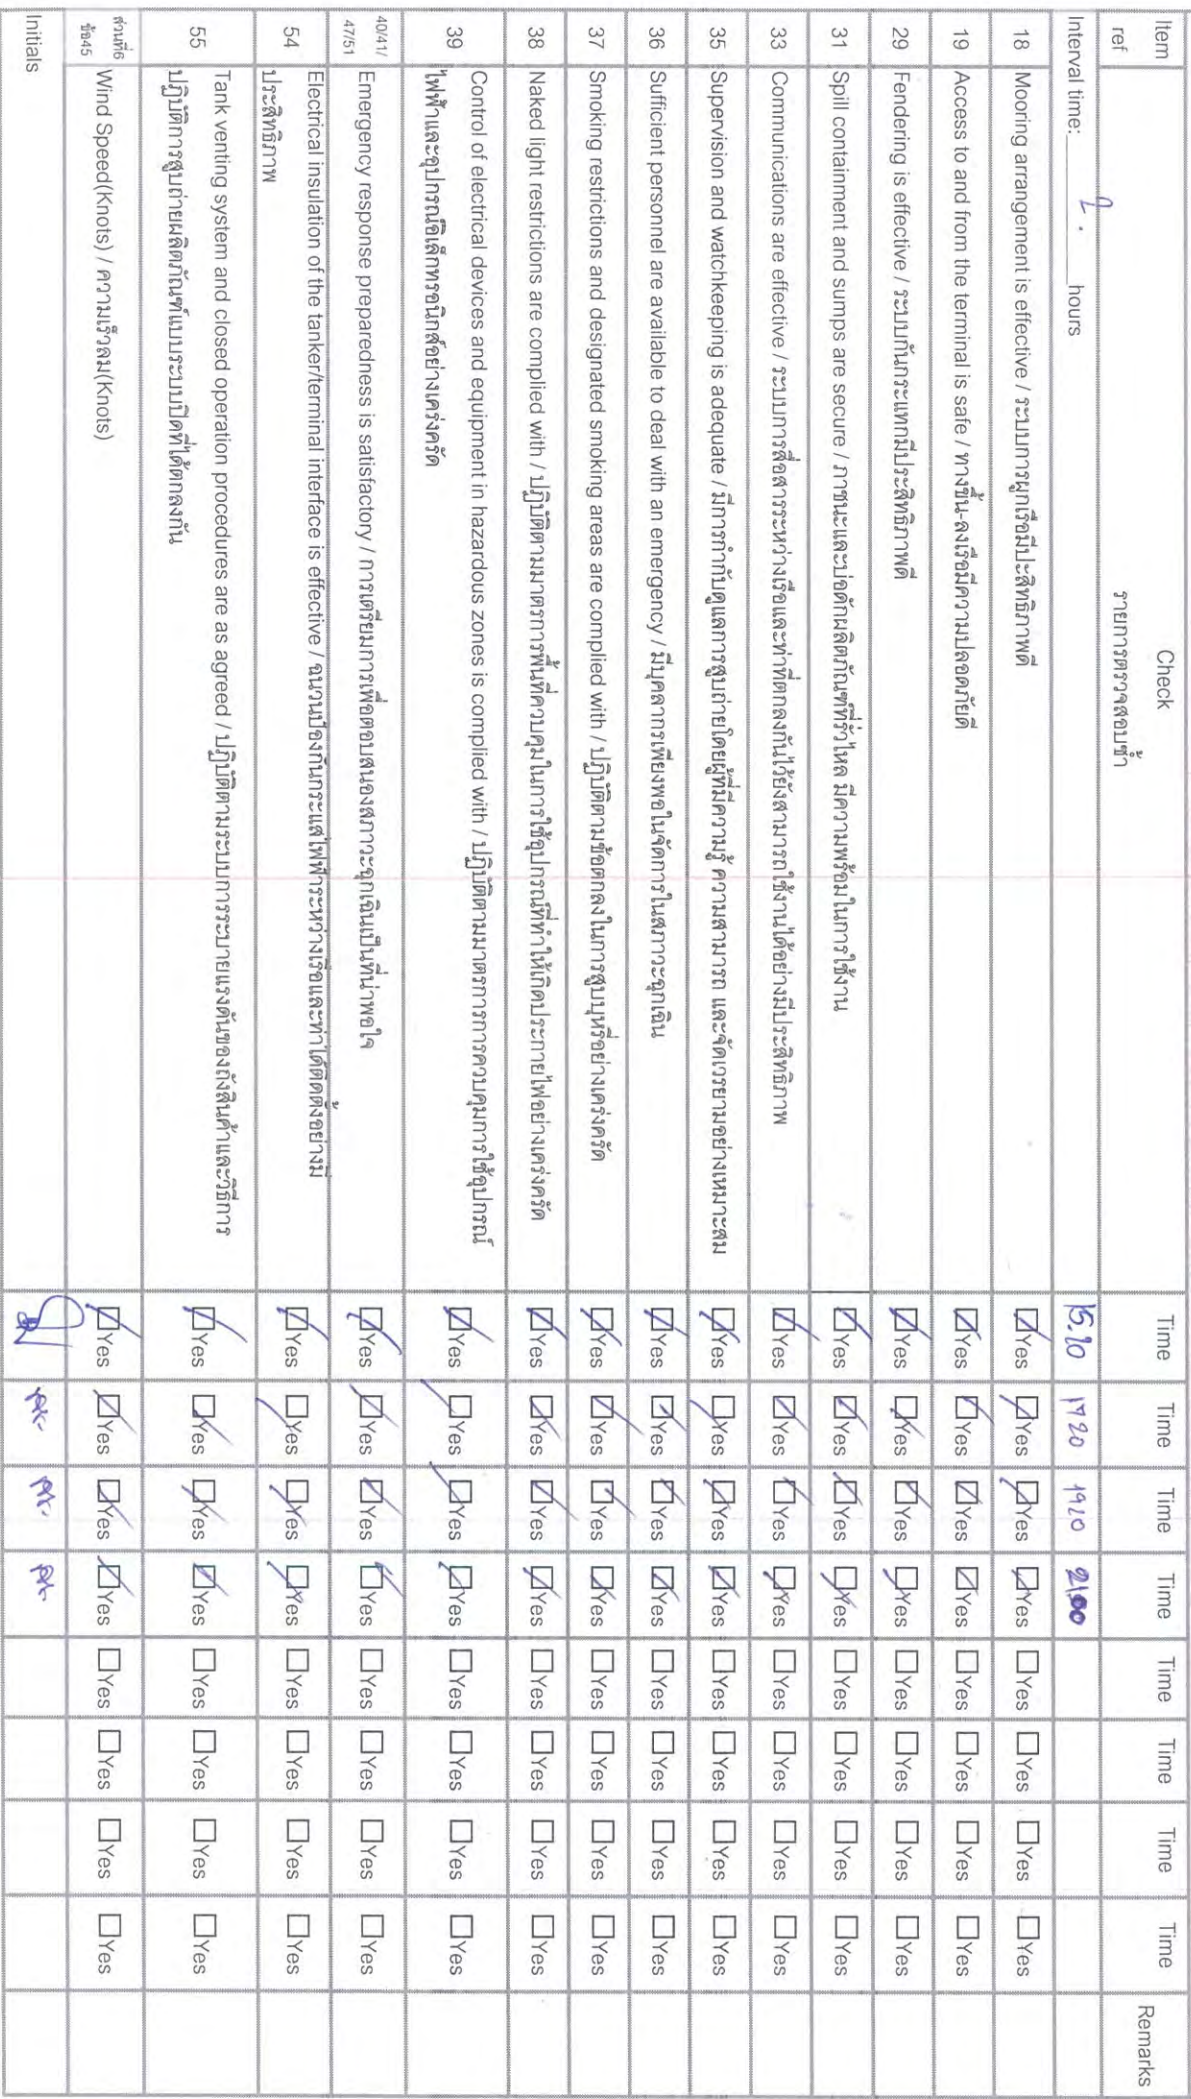 Item ref
Check
รายการตรวจสอบซ้ำ
Time Time Time Time Time Time Time Time Remarks
Interval time: 2. hours 15.20 1720 1920 2100
18 Mooring arrangement is effective / ระบบการผูกเรือมีประสิทธิภาพดี ☑Yes ☑Yes ☑Yes ☑Yes ☐Yes ☐Yes ☐Yes ☐Yes
19 Access to and from the terminal is safe / ทางขึ้น-ลงเรือมีความปลอดภัยดี ☑Yes ☑Yes ☑Yes ☑Yes ☐Yes ☐Yes ☐Yes ☐Yes
29 Fendering is effective / ระบบกันกระแทกมีประสิทธิภาพดี ☑Yes ☑Yes ☑Yes ☑Yes ☐Yes ☐Yes ☐Yes ☐Yes
31 Spill containment and sumps are secure / ภาชนะและบ่อดักผลิตภัณฑ์ที่รั่วไหล มีความพร้อมในการใช้งาน ☑Yes ☑Yes ☑Yes ☑Yes ☐Yes ☐Yes ☐Yes ☐Yes
33 Communications are effective / ระบบการสื่อสารระหว่างเรือและท่าที่ตกลงกันไว้ยังสามารถใช้งานได้อย่างมีประสิทธิภาพ ☑Yes ☑Yes ☑Yes ☑Yes ☐Yes ☐Yes ☐Yes ☐Yes
35 Supervision and watchkeeping is adequate / มีการกำกับดูแลการสูบถ่ายโดยผู้ที่มีความรู้ ความสามารถ และจัดเวรยามอย่างเหมาะสม ☑Yes ☑Yes ☑Yes ☑Yes ☐Yes ☐Yes ☐Yes ☐Yes
36 Sufficient personnel are available to deal with an emergency / มีบุคลากรเพียงพอในจัดการในสภาวะฉุกเฉิน ☑Yes ☑Yes ☑Yes ☑Yes ☐Yes ☐Yes ☐Yes ☐Yes
37 Smoking restrictions and designated smoking areas are complied with / ปฏิบัติตามข้อตกลงในการสูบบุหรี่อย่างเคร่งครัด ☑Yes ☑Yes ☑Yes ☑Yes ☐Yes ☐Yes ☐Yes ☐Yes
38 Naked light restrictions are complied with / ปฏิบัติตามมาตรการพื้นที่ควบคุมในการใช้อุปกรณ์ที่ทำให้เกิดประกายไฟอย่างเคร่งครัด ☑Yes ☑Yes ☑Yes ☑Yes ☐Yes ☐Yes ☐Yes ☐Yes
39 Control of electrical devices and equipment in hazardous zones is complied with / ปฏิบัติตามมาตรการการควบคุมการใช้อุปกรณ์
ไฟฟ้าและอุปกรณ์อิเล็กทรอนิกส์อย่างเคร่งครัด ☑Yes ☑Yes ☑Yes ☑Yes ☐Yes ☐Yes ☐Yes ☐Yes
40/41/
47/51 Emergency response preparedness is satisfactory / การเตรียมการเพื่อตอบสนองสภาวะฉุกเฉินเป็นที่น่าพอใจ ☑Yes ☑Yes ☑Yes ☑Yes ☐Yes ☐Yes ☐Yes ☐Yes
54 Electrical insulation of the tanker/terminal interface is effective / ฉนวนป้องกันกระแสไฟฟ้าระหว่างเรือและท่าได้ติดตั้งอย่างมี
ประสิทธิภาพ ☑Yes ☑Yes ☑Yes ☑Yes ☐Yes ☐Yes ☐Yes ☐Yes
55 Tank venting system and closed operation procedures are as agreed / ปฏิบัติตามระบบการระบายแรงดันของถังสินค้าและวิธีการ
ปฏิบัติการสูบถ่ายผลิตภัณฑ์แบบระบบปิดที่ได้ตกลงกัน ☑Yes ☑Yes ☑Yes ☑Yes ☐Yes ☐Yes ☐Yes ☐Yes
ส่วนที่6
ข้อ45 Wind Speed(Knots) / ความเร็วลม(Knots) ☑Yes ☑Yes ☑Yes ☑Yes ☐Yes ☐Yes ☐Yes ☐Yes
Initials